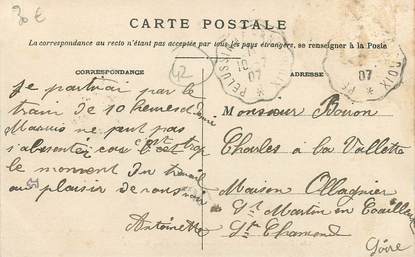 30 €
CARTE POSTALE
La correspondance au recto n'étant pas acceptée par tous les pays étrangers, se renseigner à la Poste
CORRESPONDANCE
42
ADRESSE
PELUSSIN
07
07
Je partirai par le
train de 10 heures demie
Marius ne peut pas
s'absenter car c'est trop
le moment du travail
au plaisir de vous voir
Antoinette
Monsieur Boron
Charles à la Vallette
Maison Ollagnier
St Martin en Coailleux
St Chamond
Loire